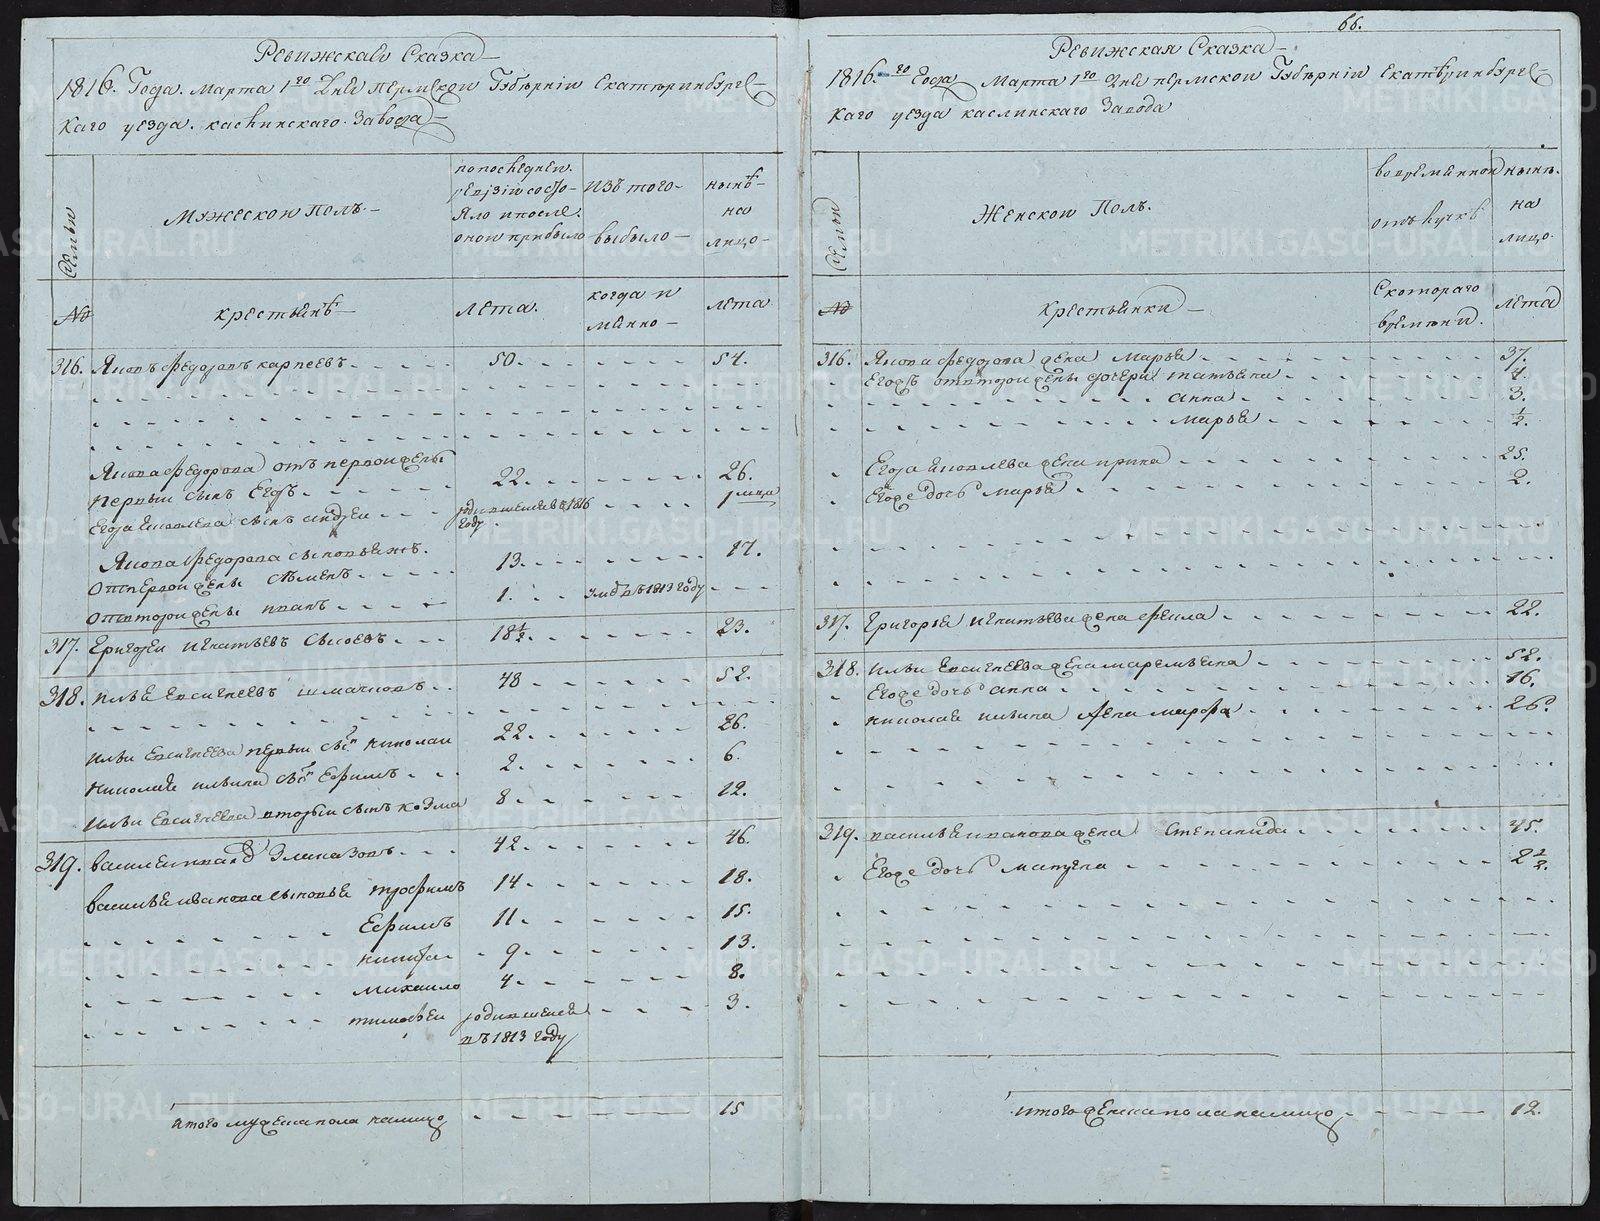 Ревижская Сказка
1816. Года. марта 1го Дня пермской Губернiи Екатеринбургс-
каго уезда. каслинскаго. Завода
Семьи
Мужескои Полъ.
попоследнеи.
ревiзiи состо-
яло ипосле.
онои прибыло
изъ того-
выбыло
нынѣ-
на
лицо-
№
крестьянъ
лета.
когда и
менно-
лета
316. Яковъ федоровъ карпеевъ 50. 54.
Якова Федорова отъ первои жены
первыи сынъ Егоръ 22. 26.
Егора Яковлева сынъ андреи родившеися въ 1816 году 1 меца
Якова Федорова сыновьяжъ.
отпервои жены Сѣменъ 13. 17.
отвторои жены иванъ 1. умеръ въ 1813 году
317. Григореи игнатьевъ Сысоевъ 18 1/2. 23.
318. илья Евсигнеевъ 48 52.
ильи Евсигнеева первыи сынъ николаи 22 26.
николая ильина сынъ Ефимъ 2. 6.
ильи Евсигнеева вторыи сынъ козма 8 12.
319. василеи ивановъ 42. 46.
василья иванова сыновья трофимъ 14 18.
Ефимъ 11. 15.
никифоръ 9 13.
михаило 4 8.
тимофеи родившеися въ 1813 году 3.
итого мужеска пола налицо 15
66.
Ревижская Сказка
1816го Года марта 1го Дня пермской Губернiи Екатеринбургс-
каго уезда каслинскаго Завода
Семьи
Женскои Полъ.
во временнои
отълучкѣ
нынѣ.
на
лицо-
№
крестьянки
Скотораго
времяни.
лета
316. Якова федорова жена марья 37.
Егожъ отвторои жены дочери татьяна 4.
анна 3.
марья 1/2.
Егора Яковлева жена ирина 25.
Егоже дочь марья 2.
317. Григорья игнатьева жена фекла 22.
318. ильи Евсигнеева жена маремьяна 52.
Егоже дочь анна 16.
николая ильина жена марфа 26.
319. василья иванова жена Степанида 45.
Егоже дочь матрена 2 1/2.
итого женска пола налицо 12.
METRIKI.GASO-URAL.RU